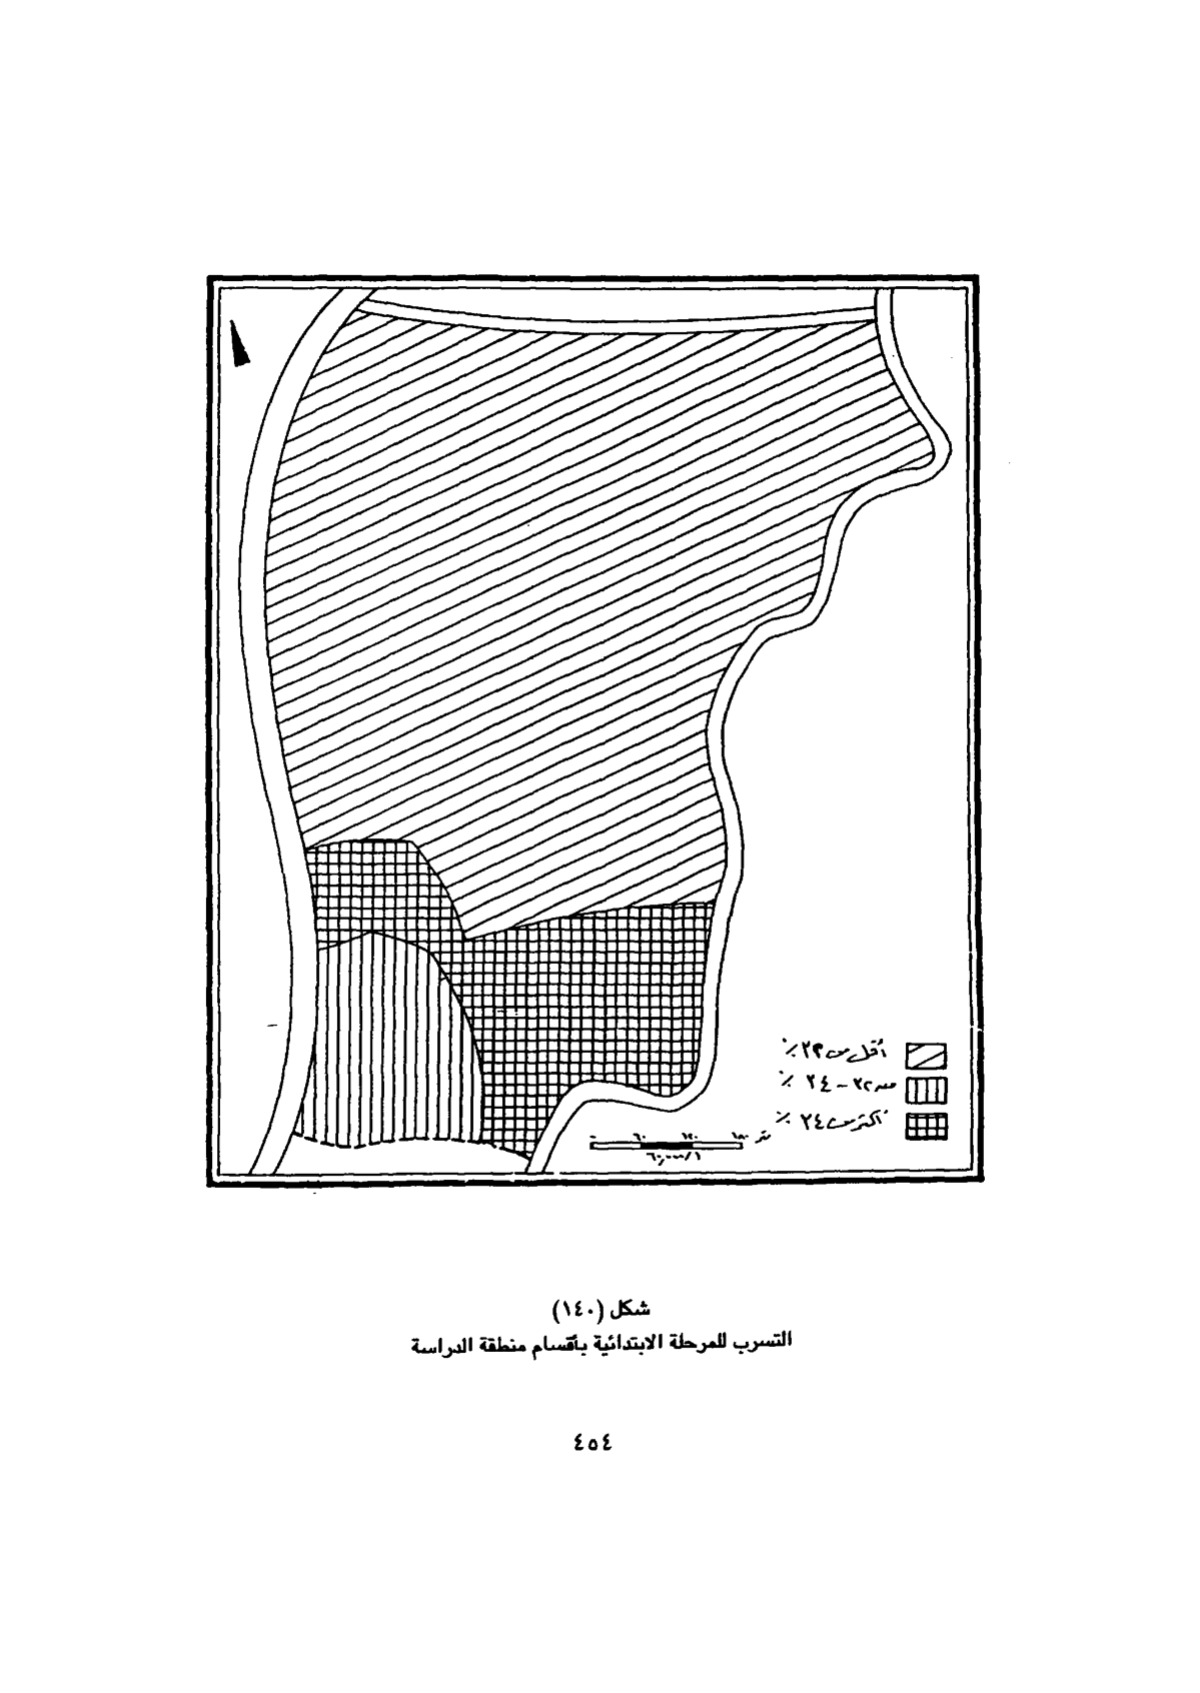 أقل من ٢٢٪
من ٢٢ - ٢٤ ٪
أكثر من ٢٤ ٪
٠ ٦٠ ١٢٠ ١٨٠ متر
شكل (١٤٠)
التسرب للمرحلة الابتدائية بأقسام منطقة الدراسة
٤٥٤